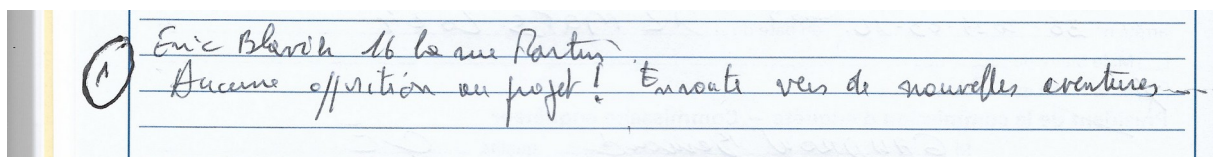 ① Eric Blavin 16 la rue Martin
Aucune opposition au projet ! Enroute vers de nouvelles aventures